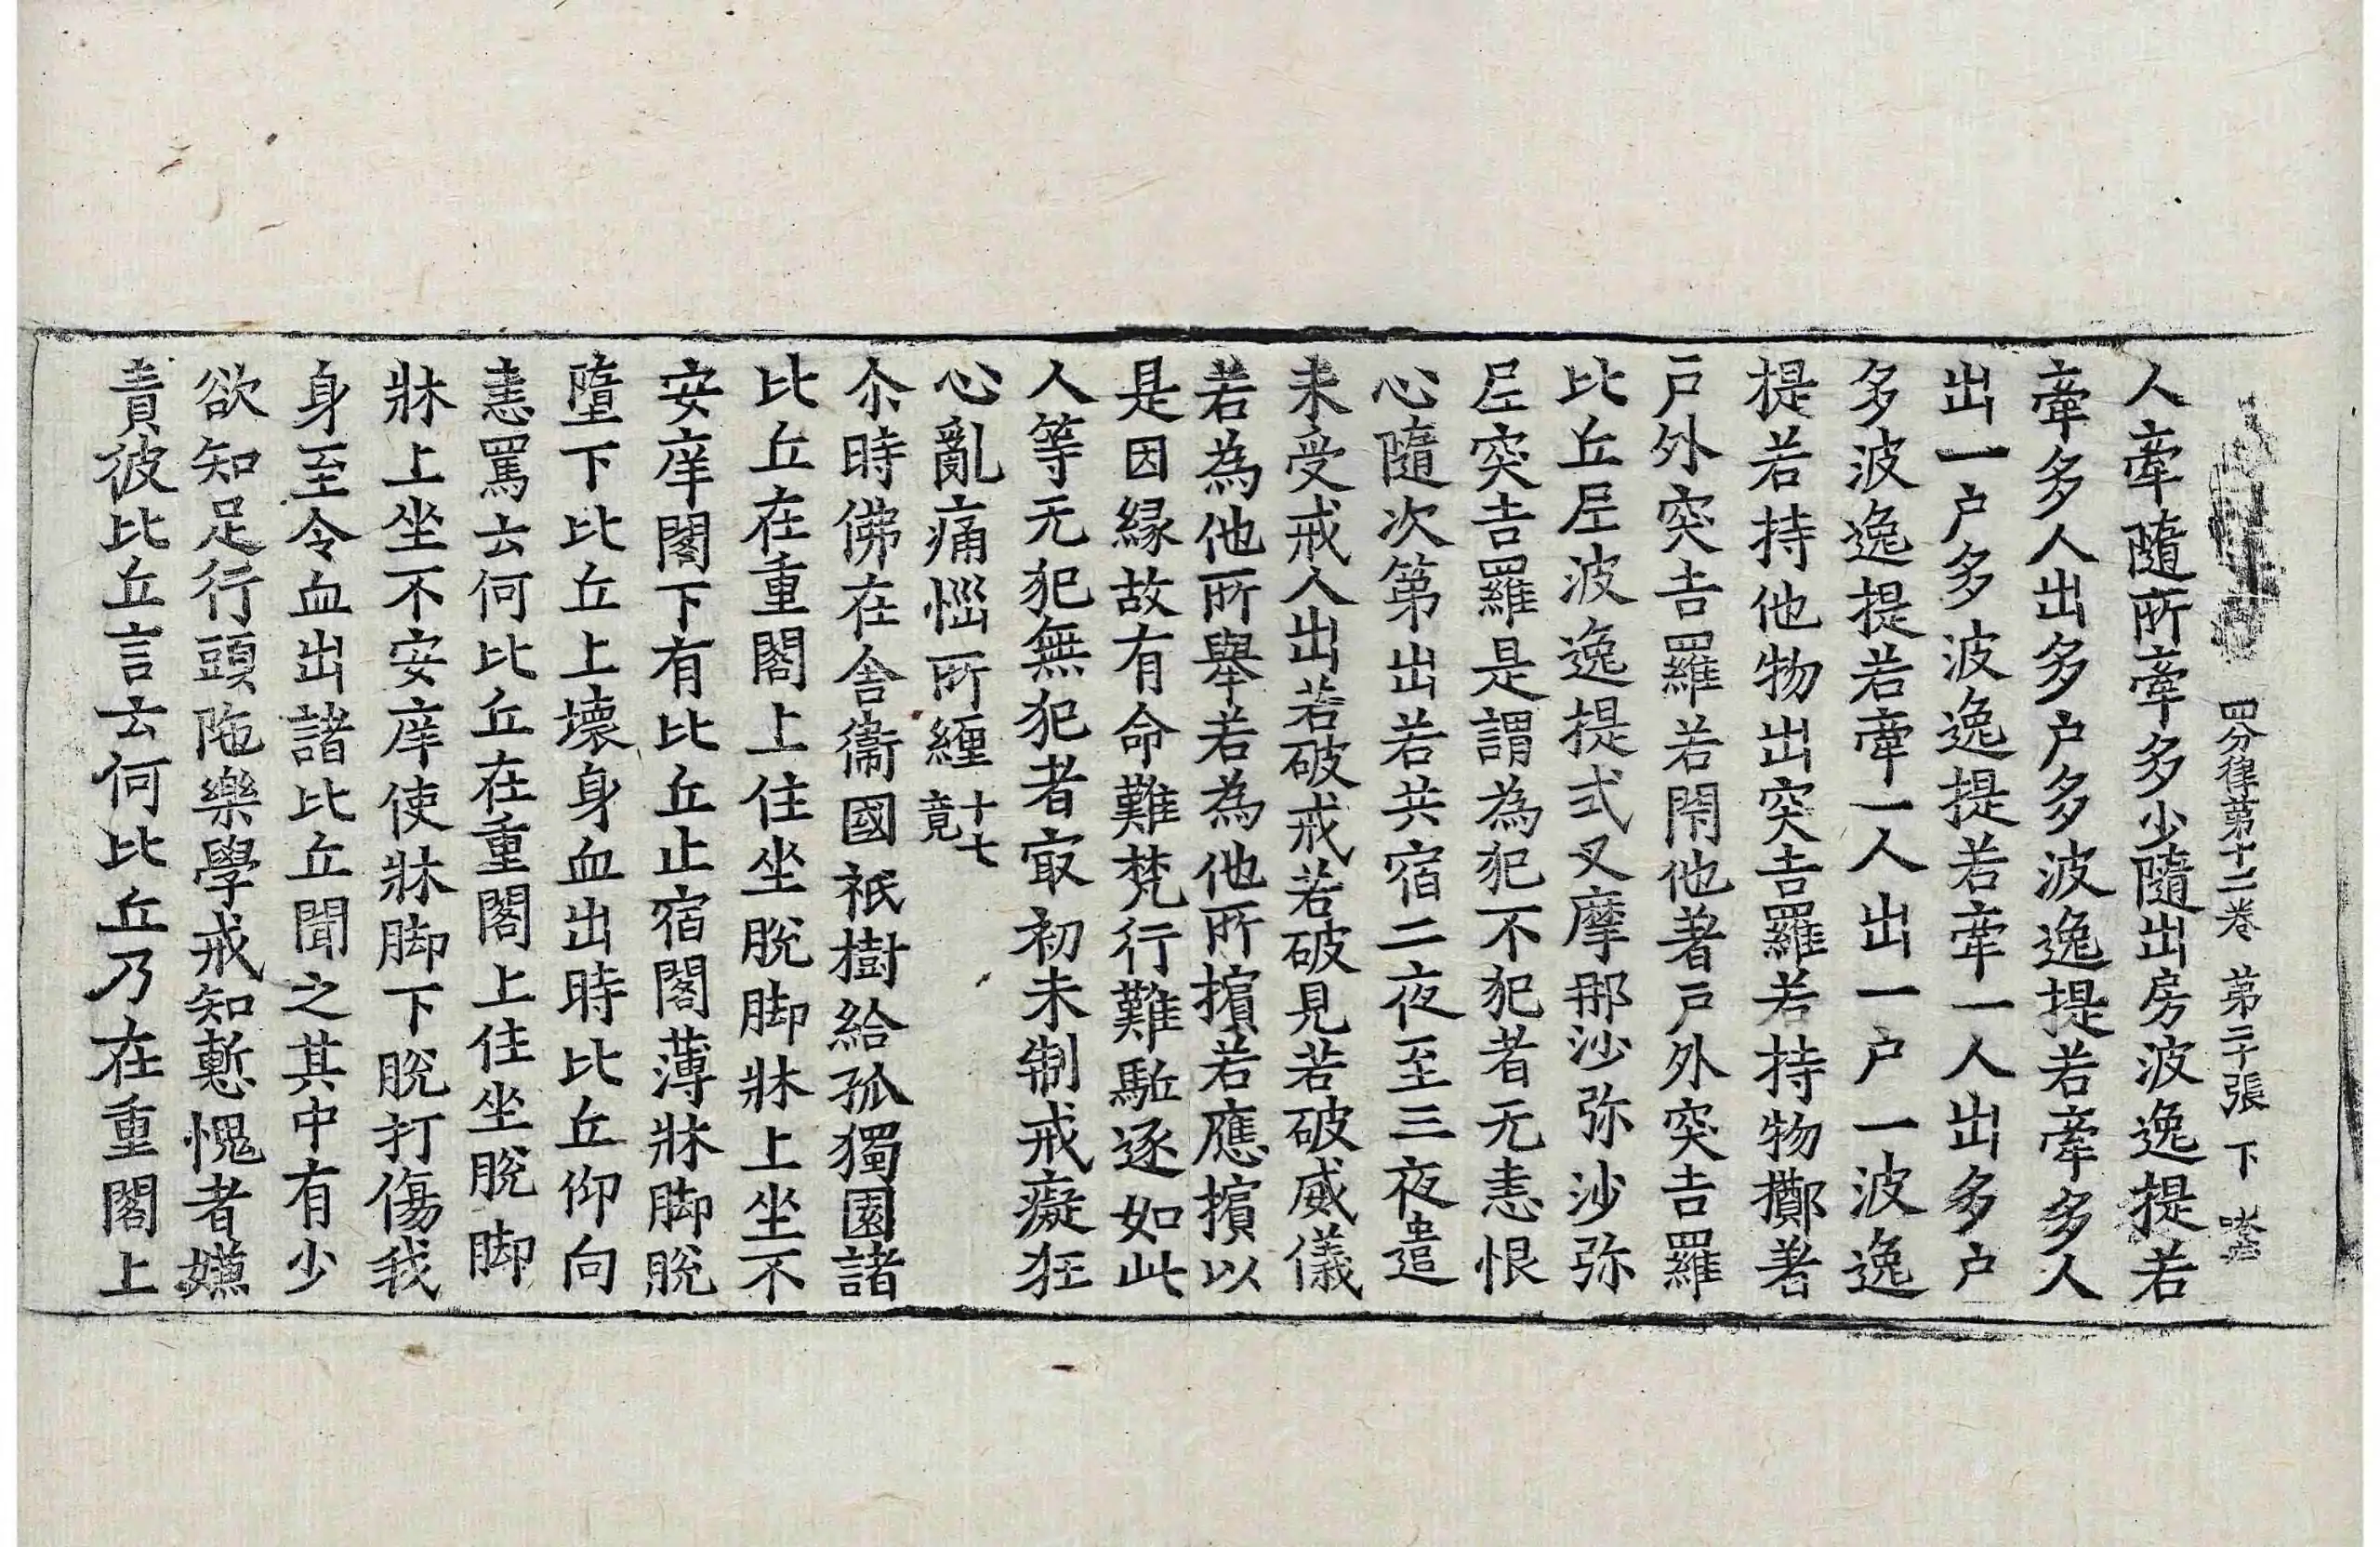 四分律第十二卷 第二十張 下
人牽隨所牽多少隨出房波逸提若
牽多人出多户多波逸提若牽多人
出一户多波逸提若牽一人出多户
多波逸提若牽一人出一户一波逸
提若持他物出突吉羅若持物擲著
戶外突吉羅若閇他著戶外突吉羅
比丘𡰱波逸提式叉摩那沙弥沙弥
𡰱突吉羅是謂為犯不犯者无恚恨
心隨次第出若共宿二夜至三夜遣
未受戒人出若破戒若破見若破威儀
若為他所舉若為他所擯若應擯以
是因縁故有命難梵行難駈逐如此
人等无犯無犯者冣初未制戒癡狂
心亂痛惱所纏十七竟
尒時佛在舍衞國祇樹給孤獨園諸
比丘在重閣上住坐脫脚牀上坐不
安庠閣下有比丘止宿閣薄牀脚脫
墮下比丘上壞身血出時比丘仰向
恚罵云何比丘在重閣上住坐脫脚
牀上坐不安庠使牀脚下脫打傷我
身至令血出諸比丘聞之其中有少
欲知足行頭陁樂學戒知慙愧者嫌
責彼比丘言云何比丘乃在重閣上